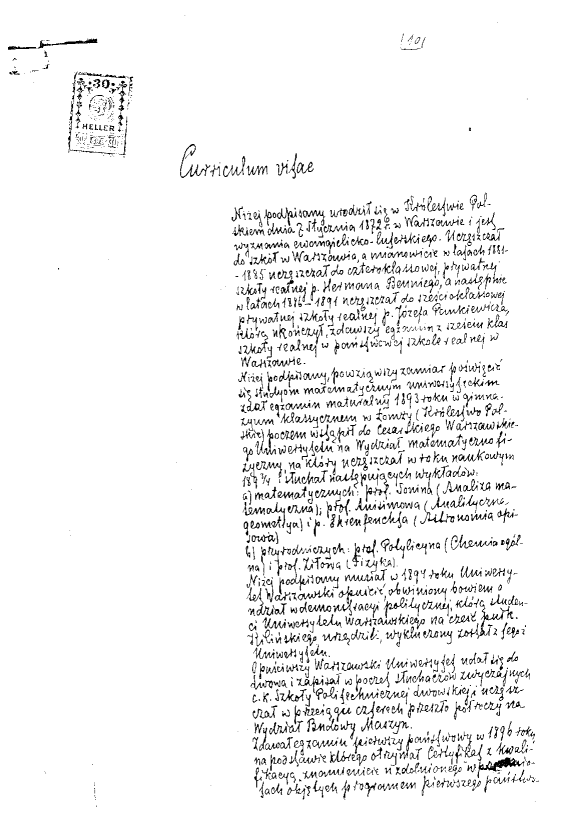 101
30
HELLER
Curriculum vitae
Niżej podpisany urodził się w Królestwie Pol-
skiem dnia 7 stycznia 1872 r. w Warszawie i jest
wyznania ewangielicko-luterskiego. Uczęszczał
do szkół w Warszawie, a mianowicie w latach 1881-
-1885 uczęszczał do czteroklassowej prywatnej
szkoły realnej p. Hermana Benniego, a następnie
w latach 1886-1891 uczęszczał do sześcioklassowej
prywatnej szkoły realnej p. Józefa Pankiewicza,
którą ukończył, zdawszy egzamin z sześciu klas
szkoły realnej w państwowej szkole realnej w
Warszawie.
Niżej podpisany, powziąwszy zamiar poświęcić
się studyom matematycznym uniwersyteckim
zdał egzamin maturalny 1893 roku w gimna-
zyum klassycznem w Łomży (Królestwo Pol-
skie) poczem wstąpił do Cesarskiego Warszawskie-
go Uniwersytetu na Wydział matematyczno fi-
zyczny na który uczęszczał w roku naukowym
1893/4 i słuchał następujących wykładów:
a) matematycznych: prof. Sonina (Analiza ma-
tematyczna); prof. Anisimowa (Analityczna
geometrya) i p. Ehrenfeuchta (Astronomia opi-
sowa)
b) przyrodniczych: prof. Potylicyna (Chemia ogól-
na) i prof. Ziłowa (Fizyka).
Niżej podpisany musiał w 1894 roku Uniwersy-
tet Warszawski opuścić, obwiniony bowiem o
udział w demonstracyi politycznej, którą studen-
ci Uniwersytetu Warszawskiego na cześć pułk.
Kilińskiego urządzili, wykluczony został z tego
Uniwersytetu.
Opuściwszy Warszawski Uniwersytet udał się do
Lwowa i zapisał w poczet słuchaczów zwyczajnych
c.k. Szkoły Politechnicznej lwowskiej i uczęsz-
czał w przeciągu czterech przeszło półroczy na
Wydział Budowy Maszyn.
Zdawał egzamin pierwszy państwowy w 1896 roku
na podstawie którego otrzymał Certyfikat z kwali-
fikacyą znamienicie uzdolnionego w
tach objętych programem pierwszego państwo-